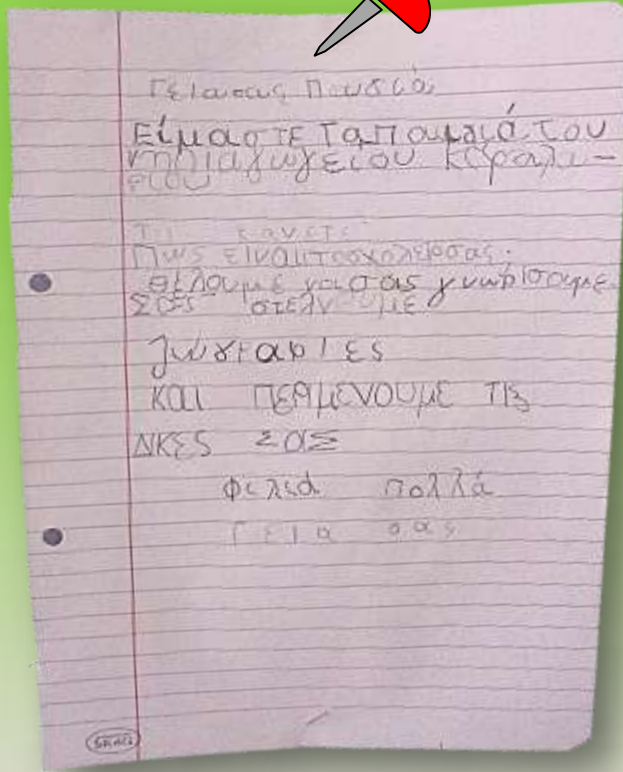 Γειασας Παιδιά
Είμαστε Ταπαιδιά του
νηπιαγωγείου Κεφαλι-
ού
Τι κανετε
Πως είναιτοσχολείοσας.
Θέλουμε νασας γνωρίσουμε
Σας στελνουμε
Ζωγραφιες
και περμενουμε τις
ΔΙΚΕS ΣΑΣ
Φιλιά πολλά
Γεια σας